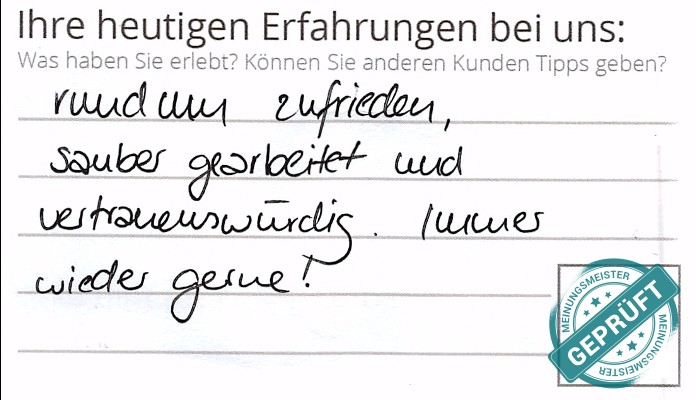 Ihre heutigen Erfahrungen bei uns:
Was haben Sie erlebt? Können Sie anderen Kunden Tipps geben?
rundum zufrieden,
sauber gearbeitet und
vertrauenswürdig. Immer
wieder gerne!
MEINUNGSMEISTER
GEPRÜFT
MEINUNGSMEISTER